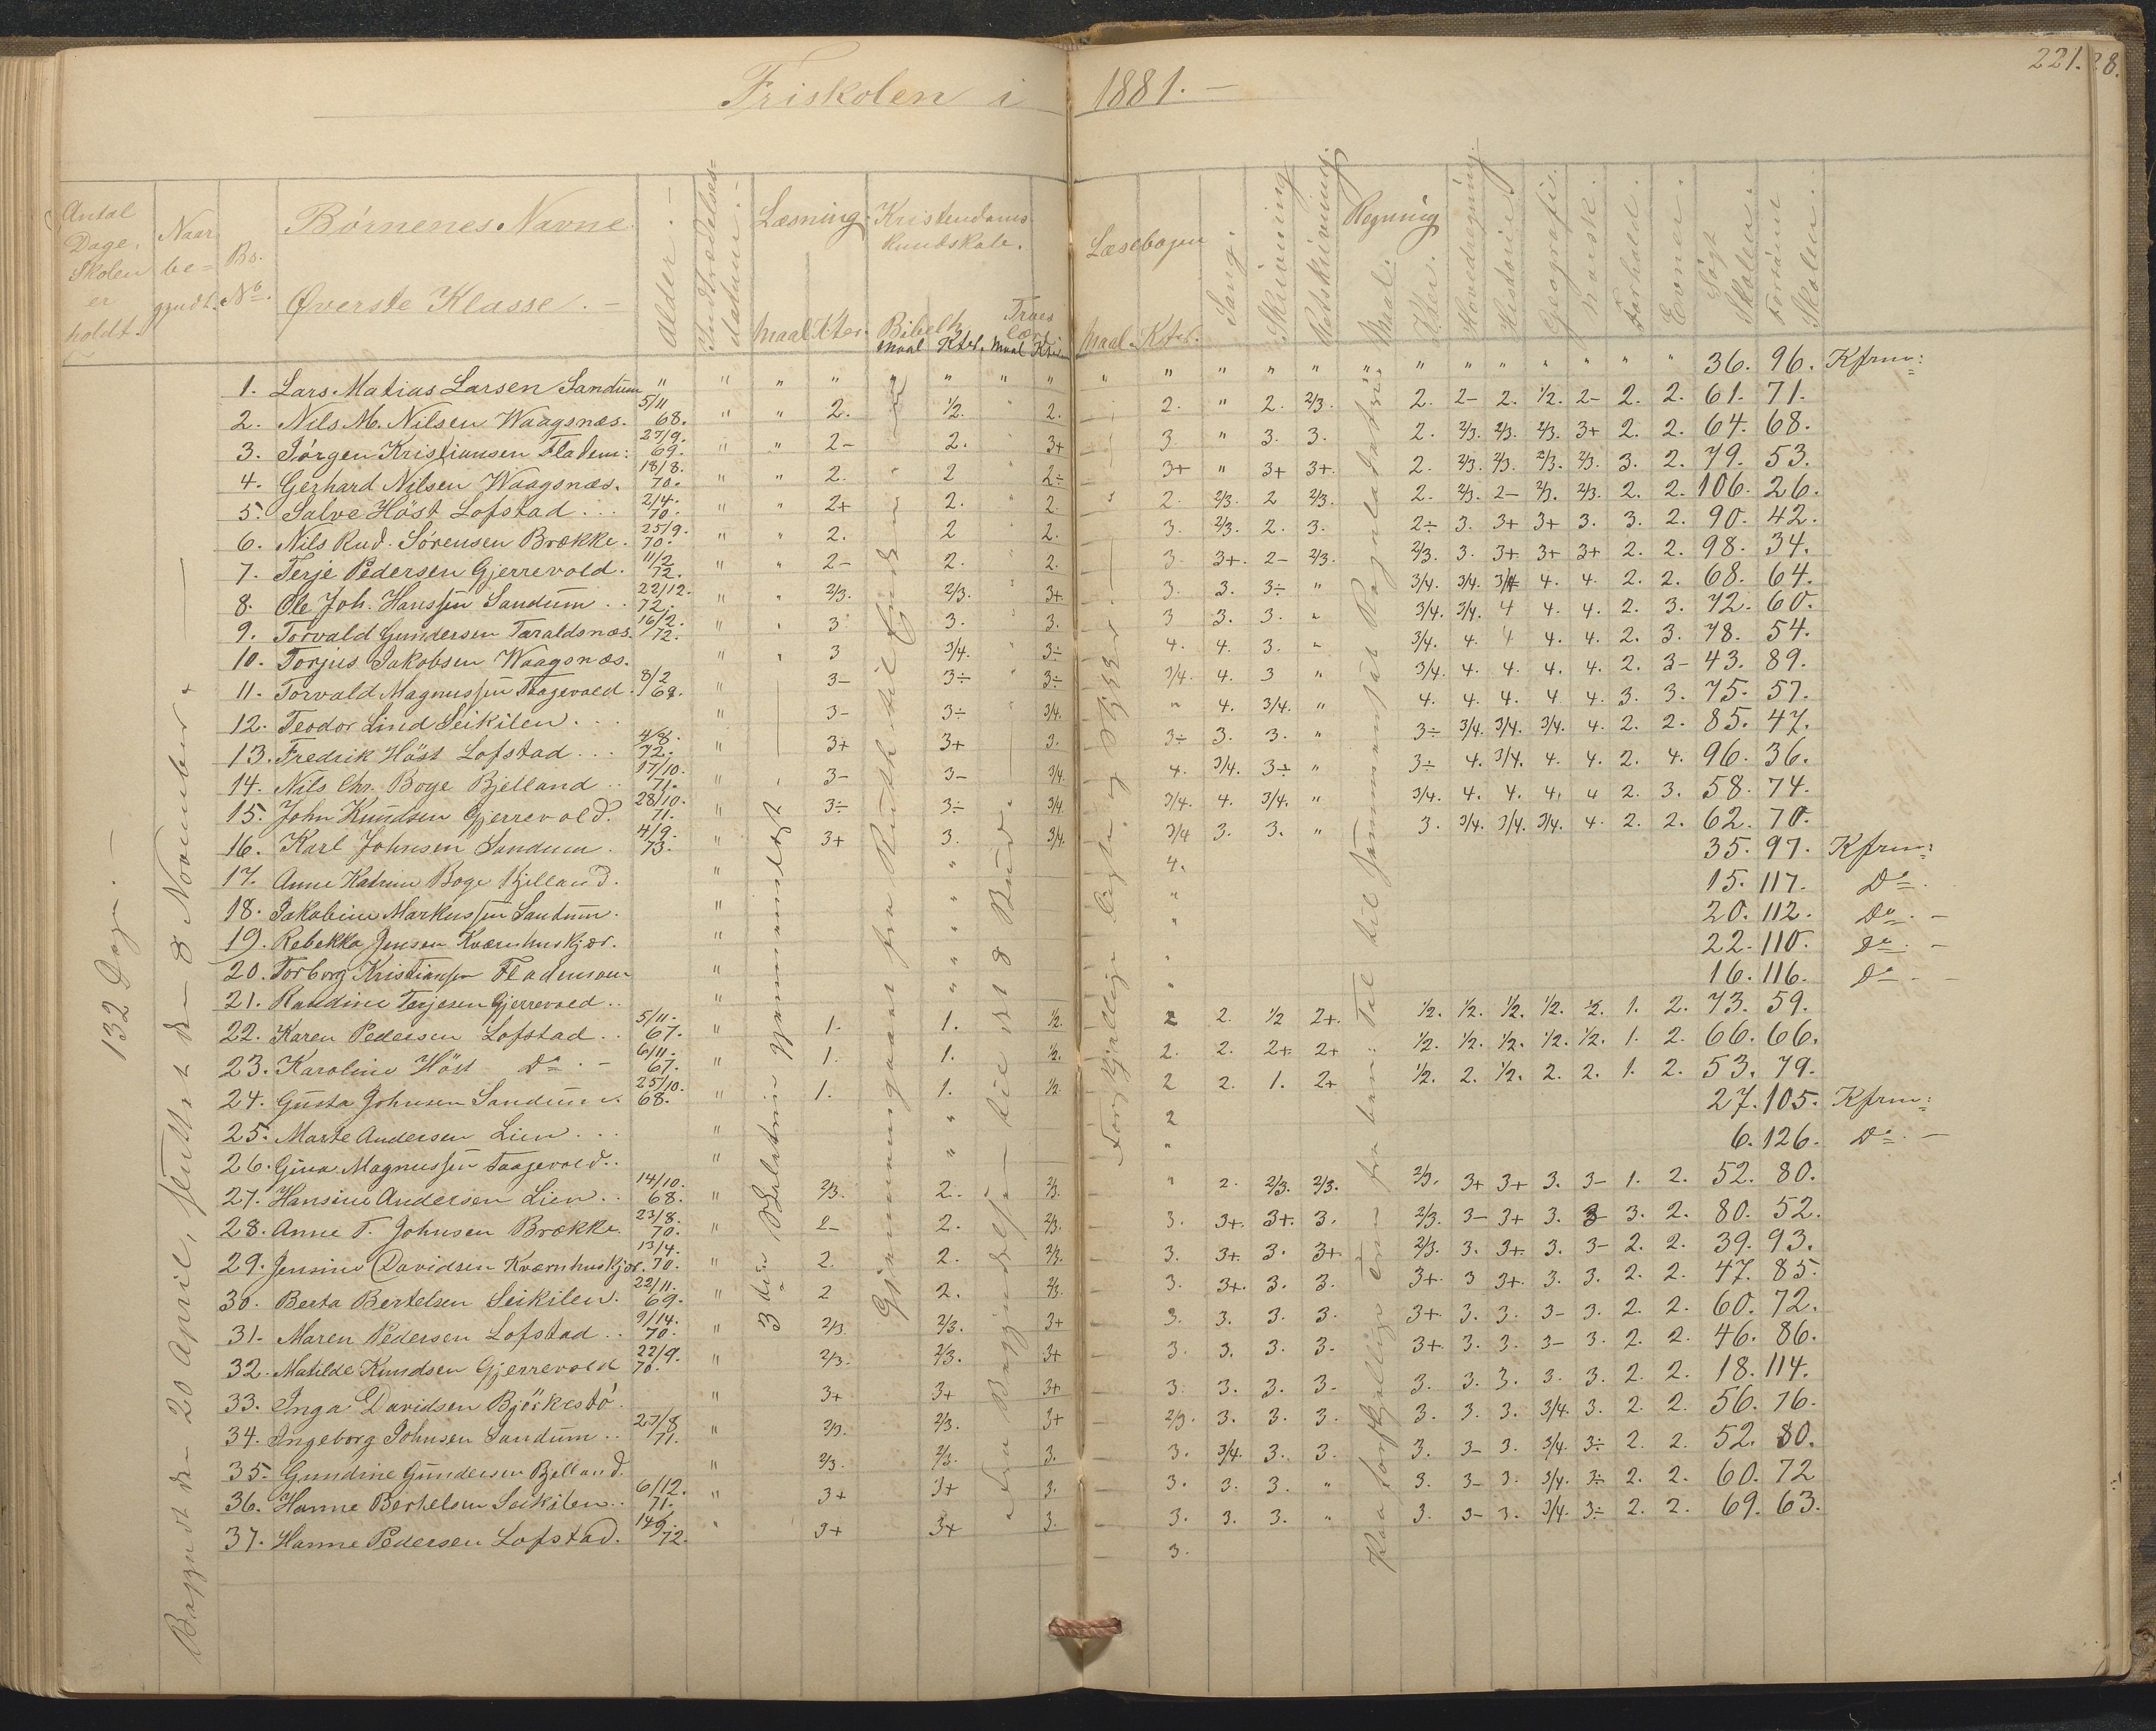 Friskolen i 1881. —
221.
28.
Antal Dage, Skolen er holdt.
Naar be=gyndt.
No.
Børnenes Navne.
Øverste Klasse. —
Alder. —
Læsning.
Maal Kter.
Kristendoms=kundskab.
Bibelh.
Maal Kter.
Troeslære
Maal
Læsebogen.
Maal. Kter.
Sang.
Skrivning
Retskrivning.
Regning
Maal.
Kter.
Hovedregning.
Historie.
Geografi.
Norsk.
Forhold.
Evner.
Søgt Skolen.
Forsömt Skolen.
132 Dage. —
Begyndt den 20 April, sluttet den 8 November.
1. Lars Matias Larsen Sandum " " " " " " " " " " " " " " " " " " " " " 36. 96. Kfrm:
2. Nils M. Nilsen Waagsnæs. 5/11 68. " " 2. 1/2. 2. 2. " 2. 2/3. 2. 2- 2. 1/2. 2- 2. 2. 61. 71.
3. Jörgen Kristiansen Fladem: 27/9. 69. " " 2- 2. 3+ 3. " 3. 3. 2. 2/3. 2/3. 2/3. 3+ 2. 2. 64. 68.
4. Gerhard Nilsen Waagsnæs. 18/8. 70. " " 2. 2 2÷ 3+ " 3+ 3+. 2. 2/3. 2/3. 2/3. 2/3. 3. 2. 79. 53.
5. Salve Höst Lofstad ... 2/4. 70. " " 2+ 2. 2. 2. 2/3. 2 2/3. 2. 2/3. 2- 2/3. 2/3. 2. 2. 106. 26.
6. Nils Rud. Sörensen Brække. 25/9. 70. " " 2. 2 2. 3. 2/3. 2. 3. 2÷ 3. 3+ 3+ 3. 3. 2. 90. 42.
7. Terje Pedersen Gjerrevold. 11/2 72. " " 2- 2. 2. 3. 3+. 2- 2/3. 2/3. 3. 3+ 3+ 3+ 2. 2. 98. 34.
8. Ole Joh. Hanssen Sandum .. 22/12. 72. " " 2/3. 2/3. 3+ 3. 3. 3÷ " 3/4. 3/4. 3/4 4. 4. 2. 2. 68. 64.
9. Torvald Gundersen Taraldsnæs. 16/2. 72. " " 3 3. 3. 3 3. 3. " 3/4. 3/4. 4 4. 4. 2. 3. 72. 60.
10. Torjus Jakobsen Waagsnæs. " " 3 3/4. 3÷ 4. 4. 3. " 3/4. 4. 4 4. 4. 2. 3. 78. 54.
11. Torvald Magnussen Taagevold. 8/2 68. " 3- 3÷ 3÷ 3/4. 4. 3 " 3/4. 4. 4. 4. 4. 2. 3- 43. 89.
12. Teodor Lind Seikilen. .. " 3- 3÷ 3/4. " 4. 3/4. " 4. 4. 4. 4 4. 3. 3. 75. 57.
13. Fredrik Höst Lofstad ... 4/8. 72. " 3+ 3+ 3. 3÷ 3. 3. " 3÷ 3/4. 3/4. 3/4. 4. 2. 2. 85. 47.
14. Nils Chr. Boge Bjelland .. 17/10. 71. " " 3- 3- 3/4. 4. 3/4. 3÷ " 3÷ 4. 3/4. 4. 4. 2. 4. 96. 36.
15. John Knudsen Gjerrevold. 28/10. 71. " 3÷ 3÷ 3/4 3/4. 4. 3/4. " 3/4. 4. 4. 4. 4 2. 3. 58. 74.
16. Karl Johnsen Sandum. 4/9. 73. " 3+ 3. 3/4. 3/4 3. 3. " 3. 3/4. 3/4. 3/4. 4. 2. 2. 62. 70.
17. Anne Katrine Boge Bjelland. " 4. 35. 97. Kfrm:
18. Jakobine Markussen Sandum. " " " 15. 117. Do.
19. Rebekka Jensen Kværnhuskjær. " " " 20. 112. Do. —
20. Torborg Kristiansen Fladmoen " " " 22. 110. Do. —
21. Randine Terjesen Gjerrevold .. " " " 16. 116. Do —
22. Karen Pedersen Lofstad .. 5/11. 67. " 1. 1. 1/2. 2 2. 1/2 2+. 1/2. 1/2. 1/2. 1/2. 1/2. 1. 2. 73. 59.
23. Karoline Höst Do. — 6/11. 67. " 1. 1. 1/2. 2. 2. 2+ 2+ 1/2. 1/2. 1/2. 1/2. 1/2. 1. 2. 66. 66.
24. Gusta Johnsen Sandum. 25/10. 68. " 1. 1. 1/2. 2 2. 1. 2+ 1/2. 2. 1/2. 2. 2. 1. 2. 53. 79.
25. Marte Andersen Lien ... " " 2 27. 105. Kfrm:
26. Gina Magnussen Taagevold .. " " " 6. 126. Do. —
27. Hansine Andersen Lien .. 14/10. 68. " 2/3. 2. 2/3. " 2. 2/3. 2/3. 2/3. 3+ 3+ 3. 3- 1. 2. 52. 80.
28. Anne T. Johnsen Brække. 23/8. 70. " 2- 2. 2/3. 3. 3+. 3+. 3. 2/3. 3- 3+ 3. 3 3. 2. 80. 52.
29. Jensine Davidsen Kværnhuskjær. 13/4. 70. " 2. 2. 2/3. 3. 3+. 3. 3+ 2/3. 3. 3+ 3. 3- 2. 2. 39. 93.
30. Berta Bertelsen Seikilen. 22/11. 69. " 2 2. 2/3. 3. 3+. 3. 3. 3+. 3 3+. 3. 3. 2. 2. 47. 85.
31. Maren Pedersen Lofstad .. 9/14. 70. " 2/3 2/3. 3+ 3. 3. 3. 3. 3+. 3. 3. 3- 3. 2. 2. 60. 72.
32. Matilde Knudsen Gjerrevold 22/9. 70. " 2/3. 2/3. 3+ 3. 3. 3. 3. 3+. 3. 3. 3- 3. 2. 2. 46. 86.
33. Inga Davidsen Björkestö. " 3+ 3+ 3+ 3. 3. 3. 3. 3. 3. 3. 3. 3. 2. 2. 18. 114.
34. Ingeborg Johnsen Sandum .. 27/8 71. " 2/3. 2/3. 3+ 2/3. 3. 3. 3. 3. 3. 3. 3/4. 3. 2. 2. 56. 76.
35. Gundine Gundersen Bjelland. " 2/3. 2/3. 3. 3. 3/4. 3. 3. 3. 3- 3. 3/4. 3÷ 2. 2. 52. 80.
36. Hanne Bertelsen Seikilen .. 6/12. 71. " 3+ 3+ 3. 3. 3. 3. " 3. 3- 3. 3/4. 3÷ 2. 2. 60. 72
37. Hanne Pedersen Lofstad. 14/6. 72. " 3+ 3+ 3. 3. 3. 3. " 3. 3- 3. 3/4. 3÷ 2. 2. 69. 63.
3.
Gjennemgaaet fra Ruth til Enden
Fra Begyndelsen til det 8 Bud.
Forskjellige
Paa forskjellige Trin fra